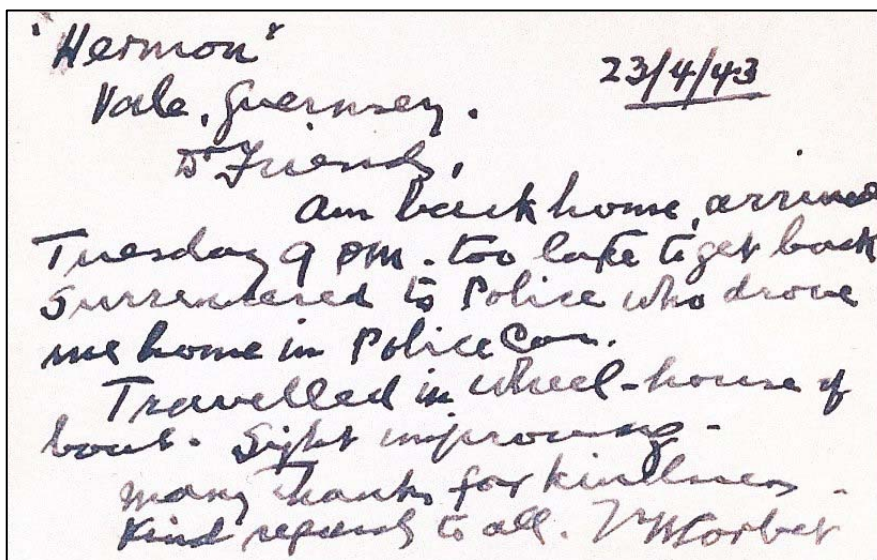 "Hermon"
23/4/43
Vale, Guernsey.
Dr Friends,
Am back home, arrived
Tuesday 9 pm. too late to get back
Surrendered to Police who drove
me home in Police Car.
Travelled in wheel-house of
boat. Sight improving.
Many thanks for kindness.
Kind regards to all.